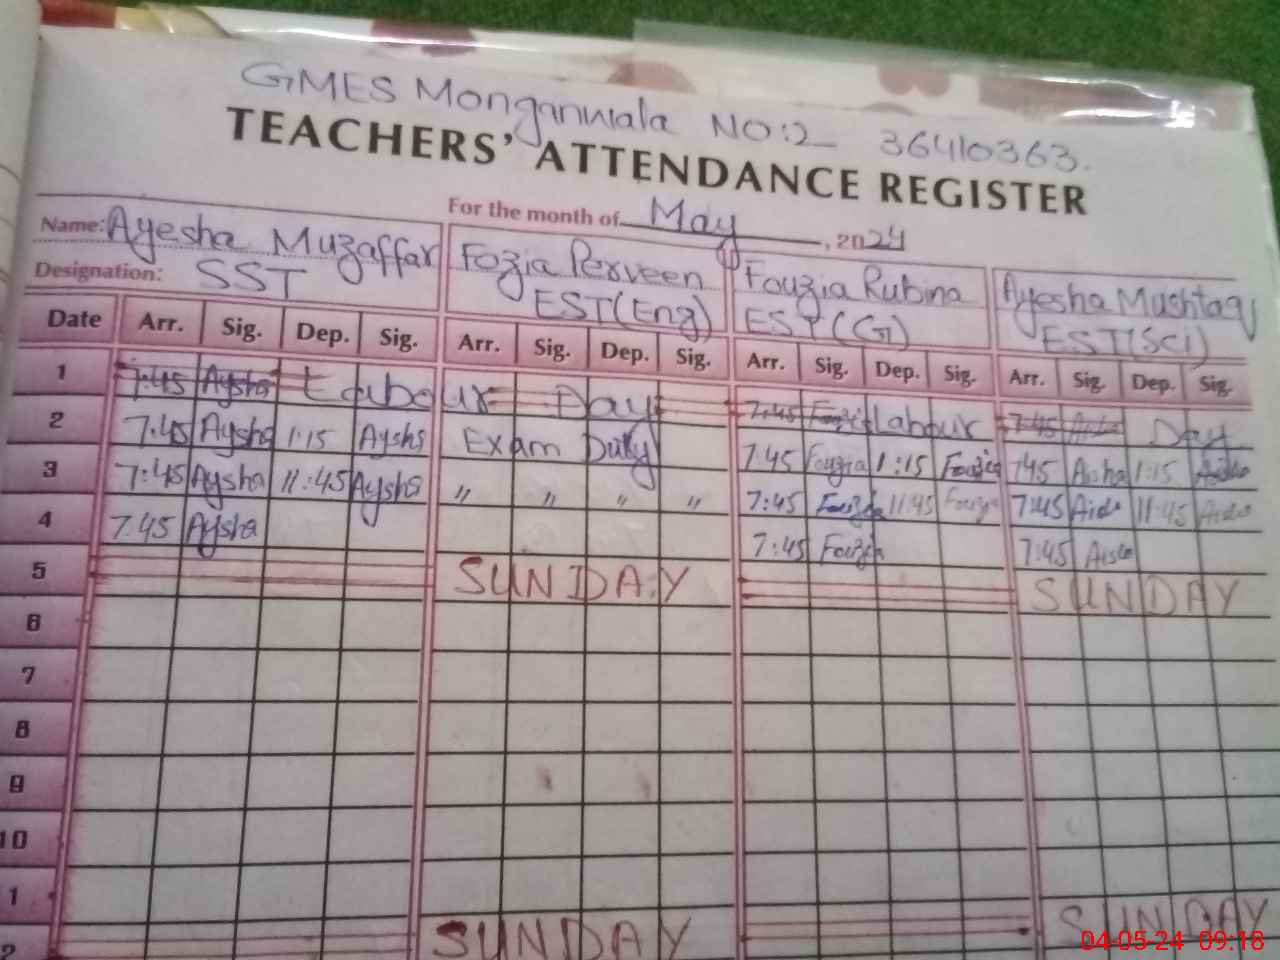 GMES Monganwala NO:2 36410363.
TEACHERS' ATTENDANCE REGISTER
For the month of May, 2024
Name: Ayesha Muzaffar Fozia Perveen Fouzia Rubina Ayesha Mushtaq
Designation: SST EST(Eng) EST(G) EST(Sci)
Date Arr. Sig. Dep. Sig. Arr. Sig. Dep. Sig. Arr. Sig. Dep. Sig. Arr. Sig. Dep. Sig.
1 7:45 Aysha Labour Day 7:45 Fouzi Labour 7:45 Day
2 7:45 Aysha 1:15 Aysha Exam Duty 7:45 Fouzia 1:15 Fouzia 7:45 Aisha 1:15
3 7:45 Aysha 11:45 Aysha " " " " 7:45 Fouzia 11:45 Fouzia 7:45 11:45
4 7.45 Aysha 7:45 Fouzia 7:45 Aisha
5 SUNDAY SUNDAY
6
7
8
9
10
1
2 SUNDAY SUNDAY
04-05-24 09:18